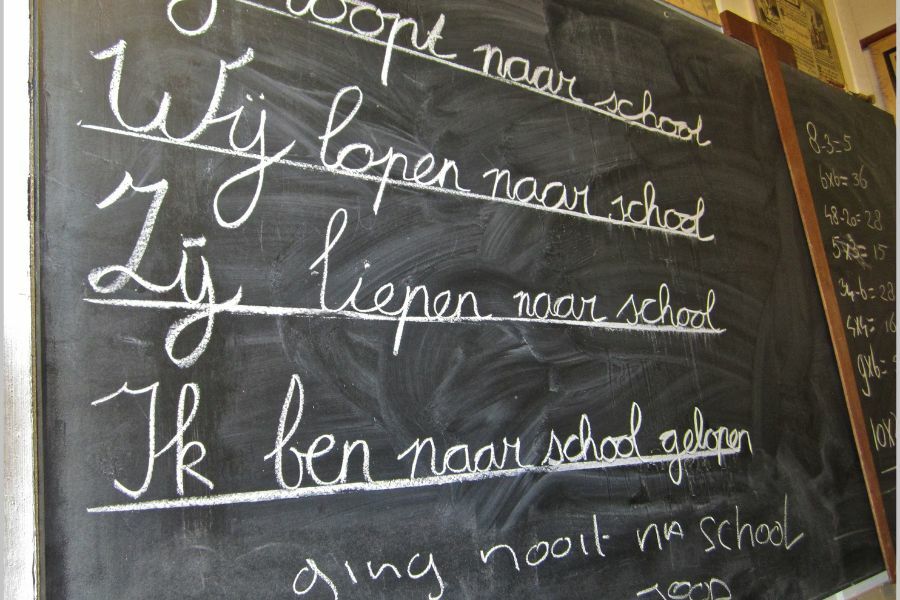 loopt naar school
Wij lopen naar school
Zij liepen naar school
Ik ben naar school gelopen
ging nooit na school
JOOP
8-3=5
6x6=36
48-20=28
5x3=15
34-6=28
4x4=16
9x6=
10x